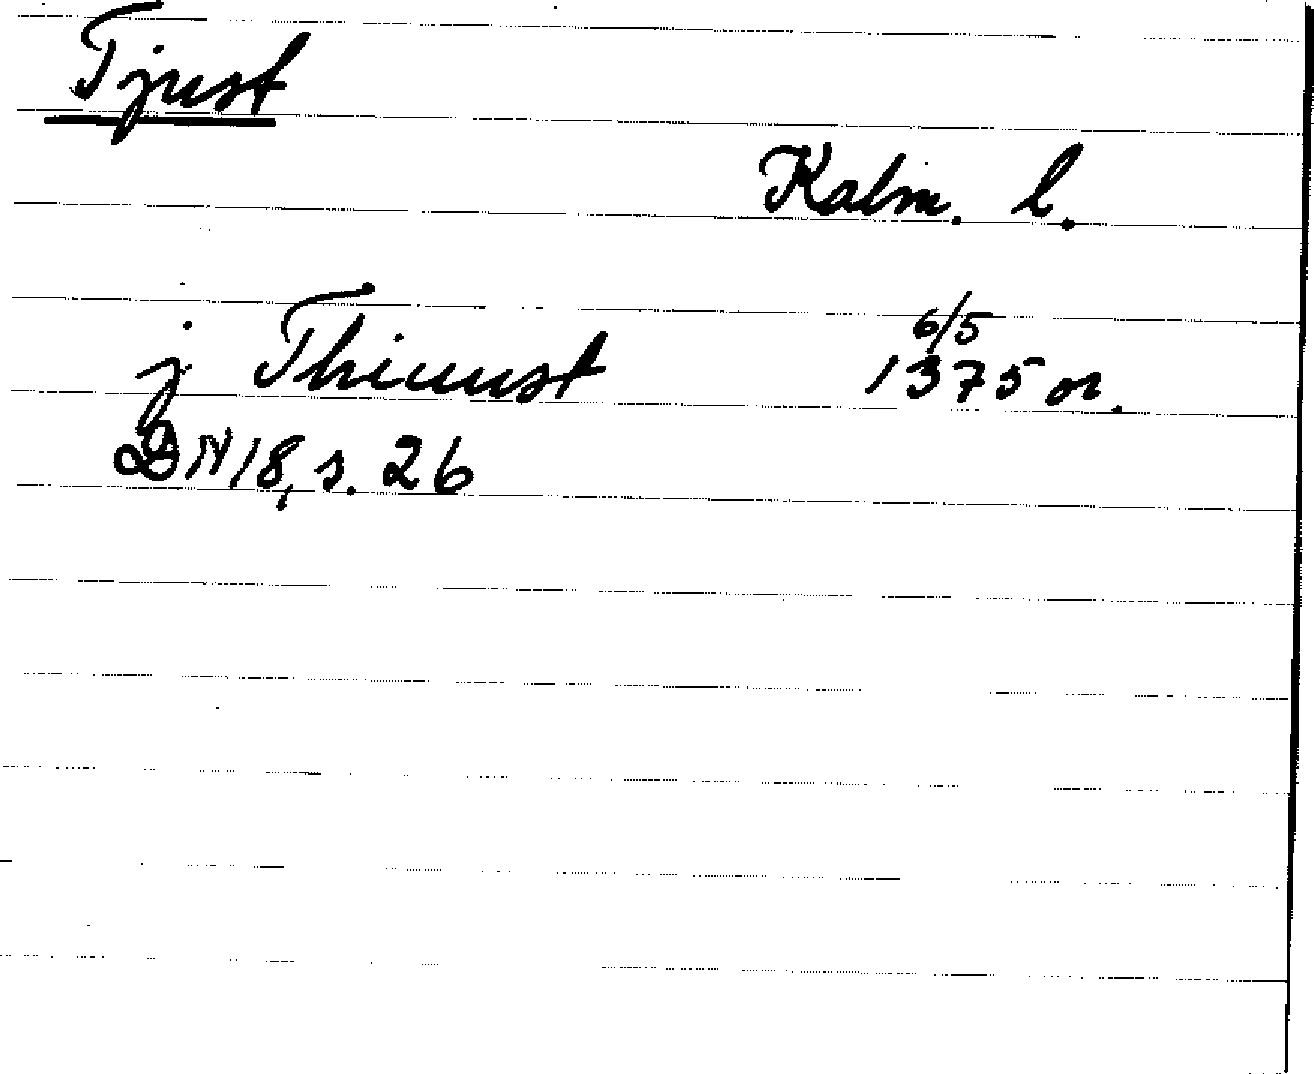 Tjust
Kalm. l.
j Thiuust 6/5 1375 or.
DN 18, s. 26